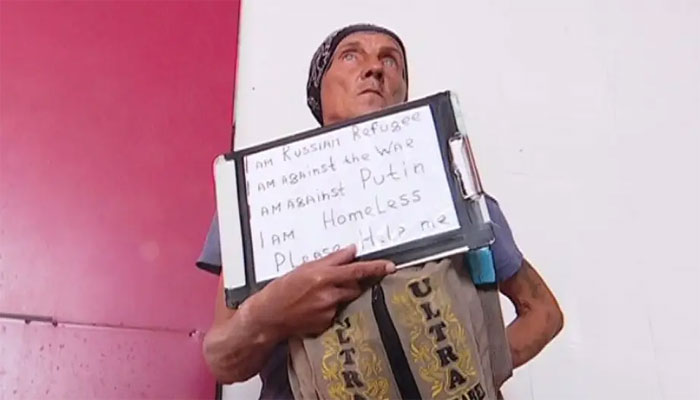 I AM RUSSIAN Refugee
I AM AgAinst the WAR
AM AgAinst Putin
I AM HomeLess
PLease Help me
ULTRA
ULTRA